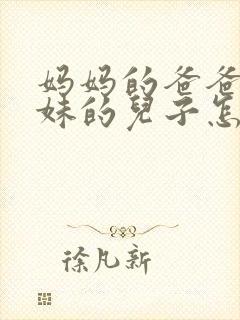 妈妈的爸爸
妹的儿子怎
徐凡新